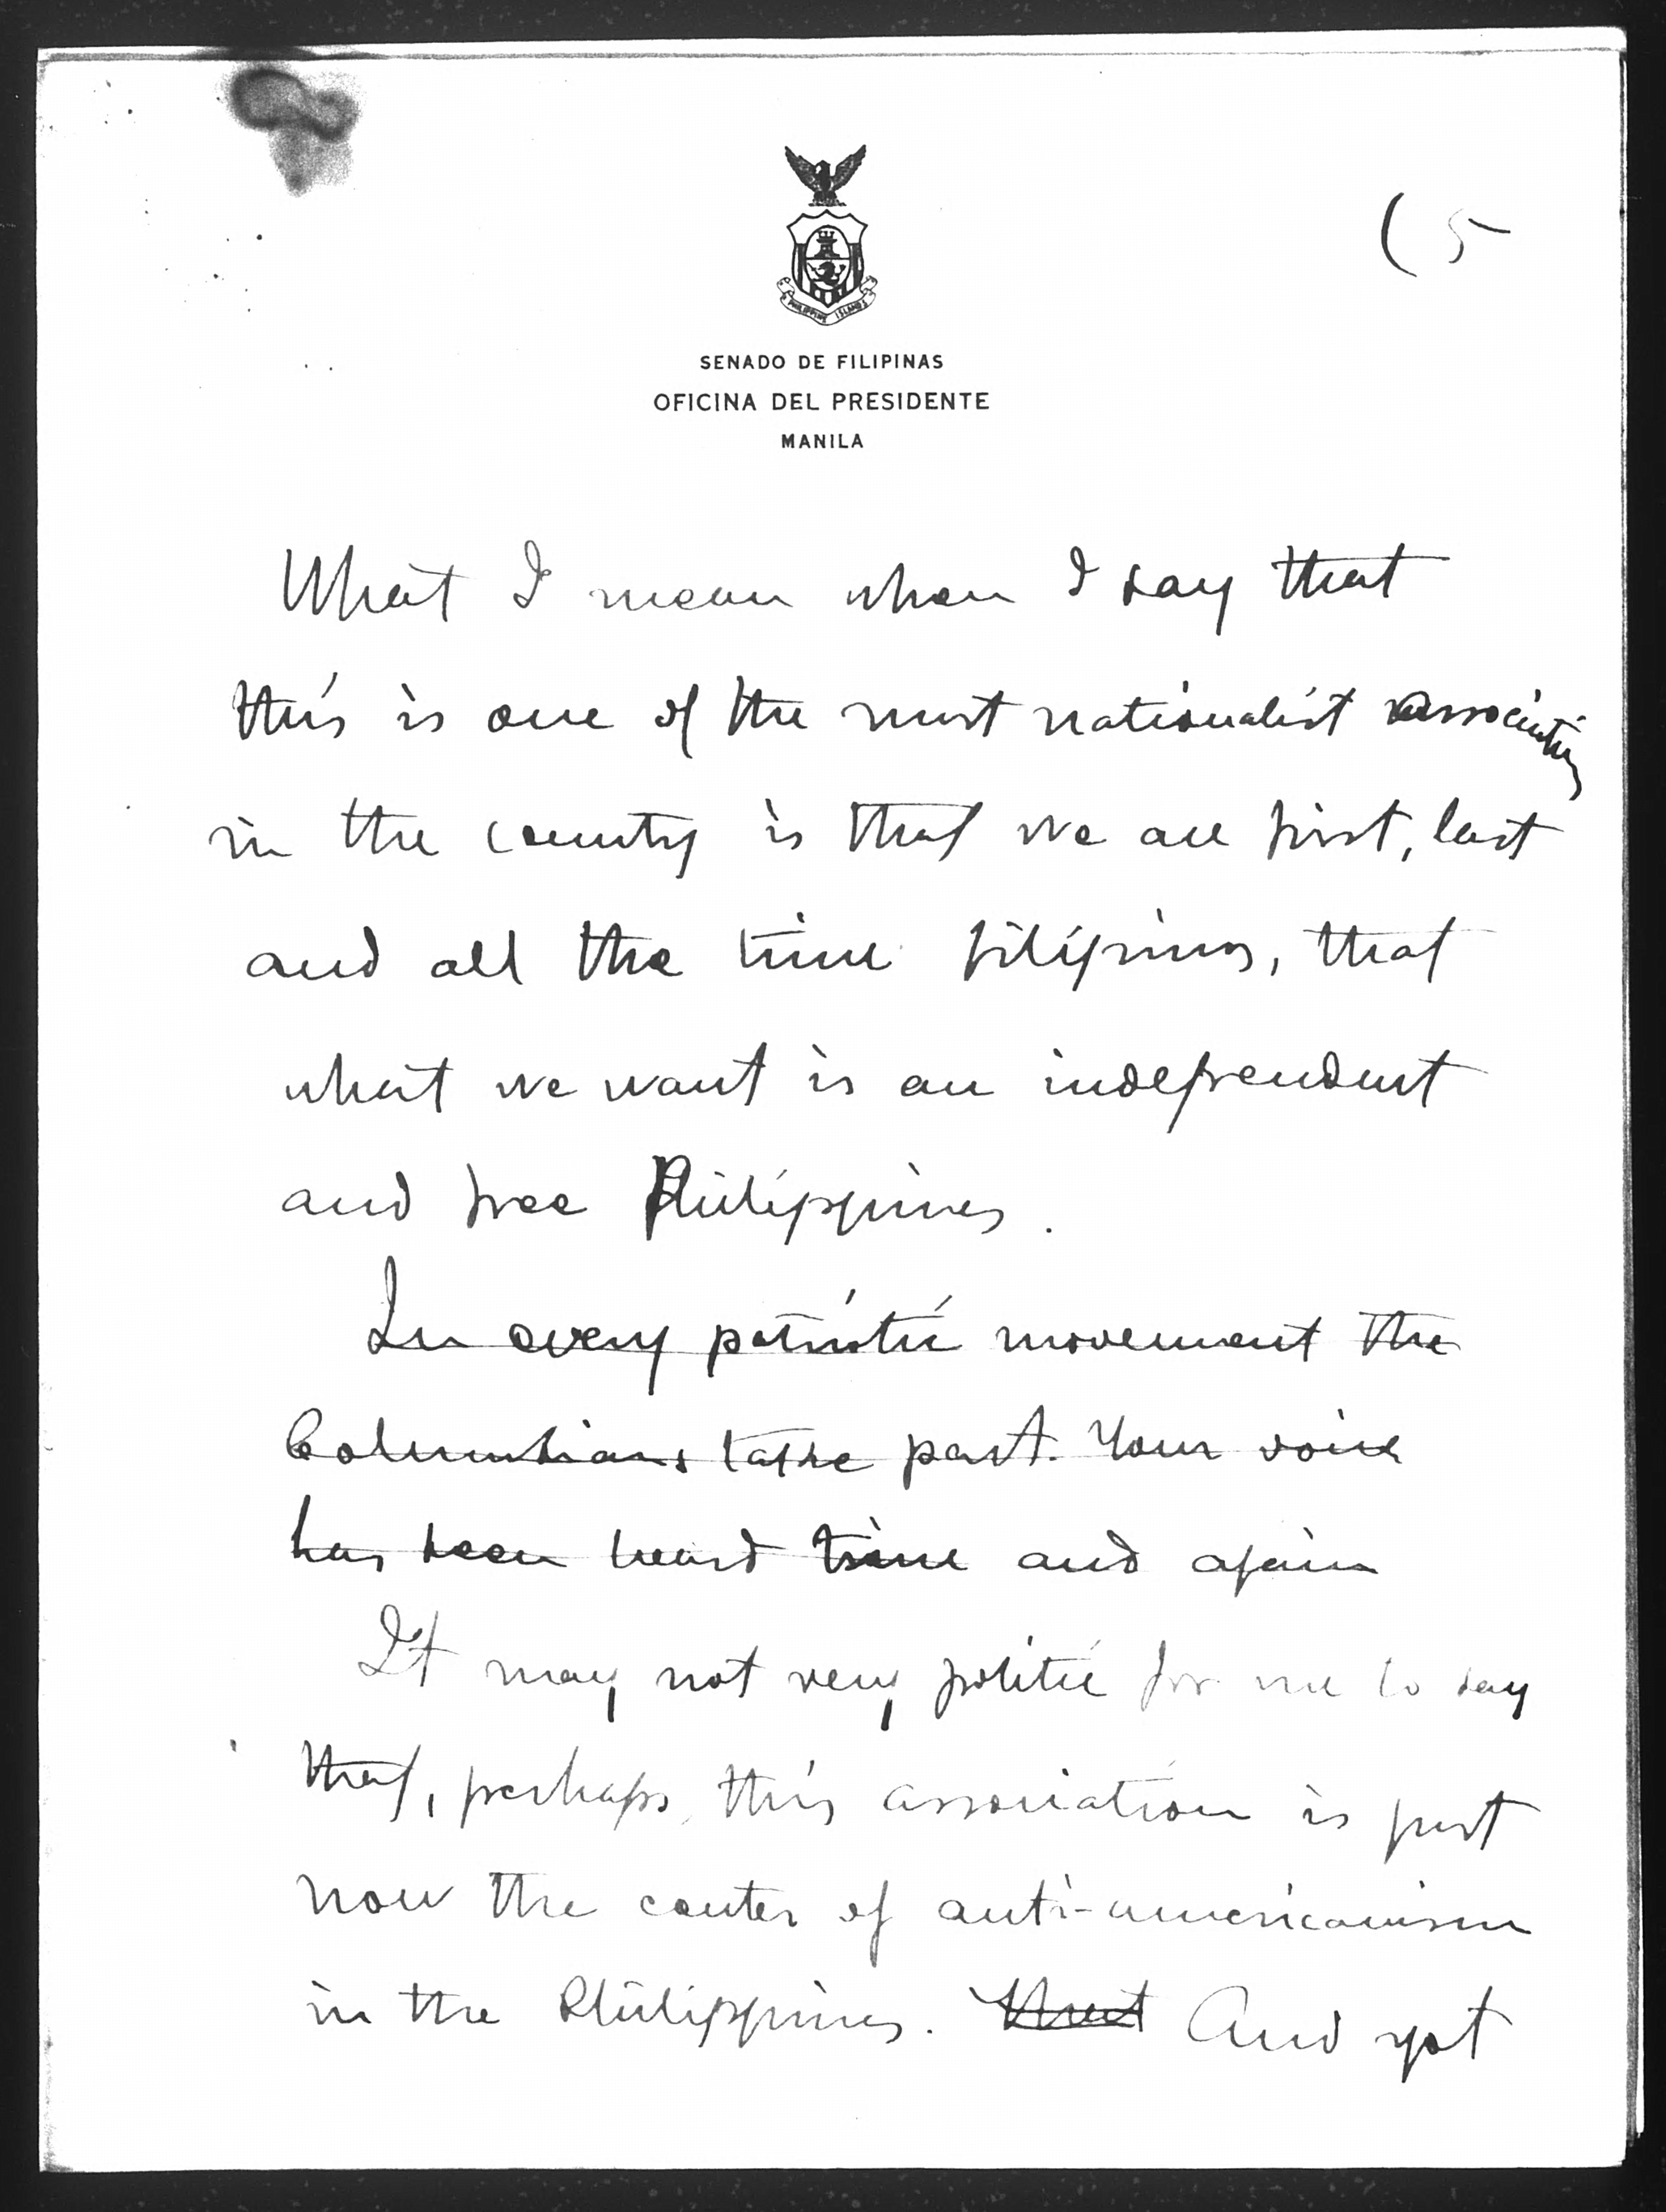 (5
PHILIPPINE ISLANDS
SENADO DE FILIPINAS
OFICINA DEL PRESIDENTE
MANILA
What I mean when I say that
this is one of the most nationalist association
in the country is that we are first, last
and all the time filipinos, that
what we want is an independent
and free Philippines.
In every patriotic movement the
Columbians take part. Your voice
has been heard time and again
It may not very politic for me to say
that, perhaps, this association is just
now the center of anti-americanism
in the Philippines. And yet